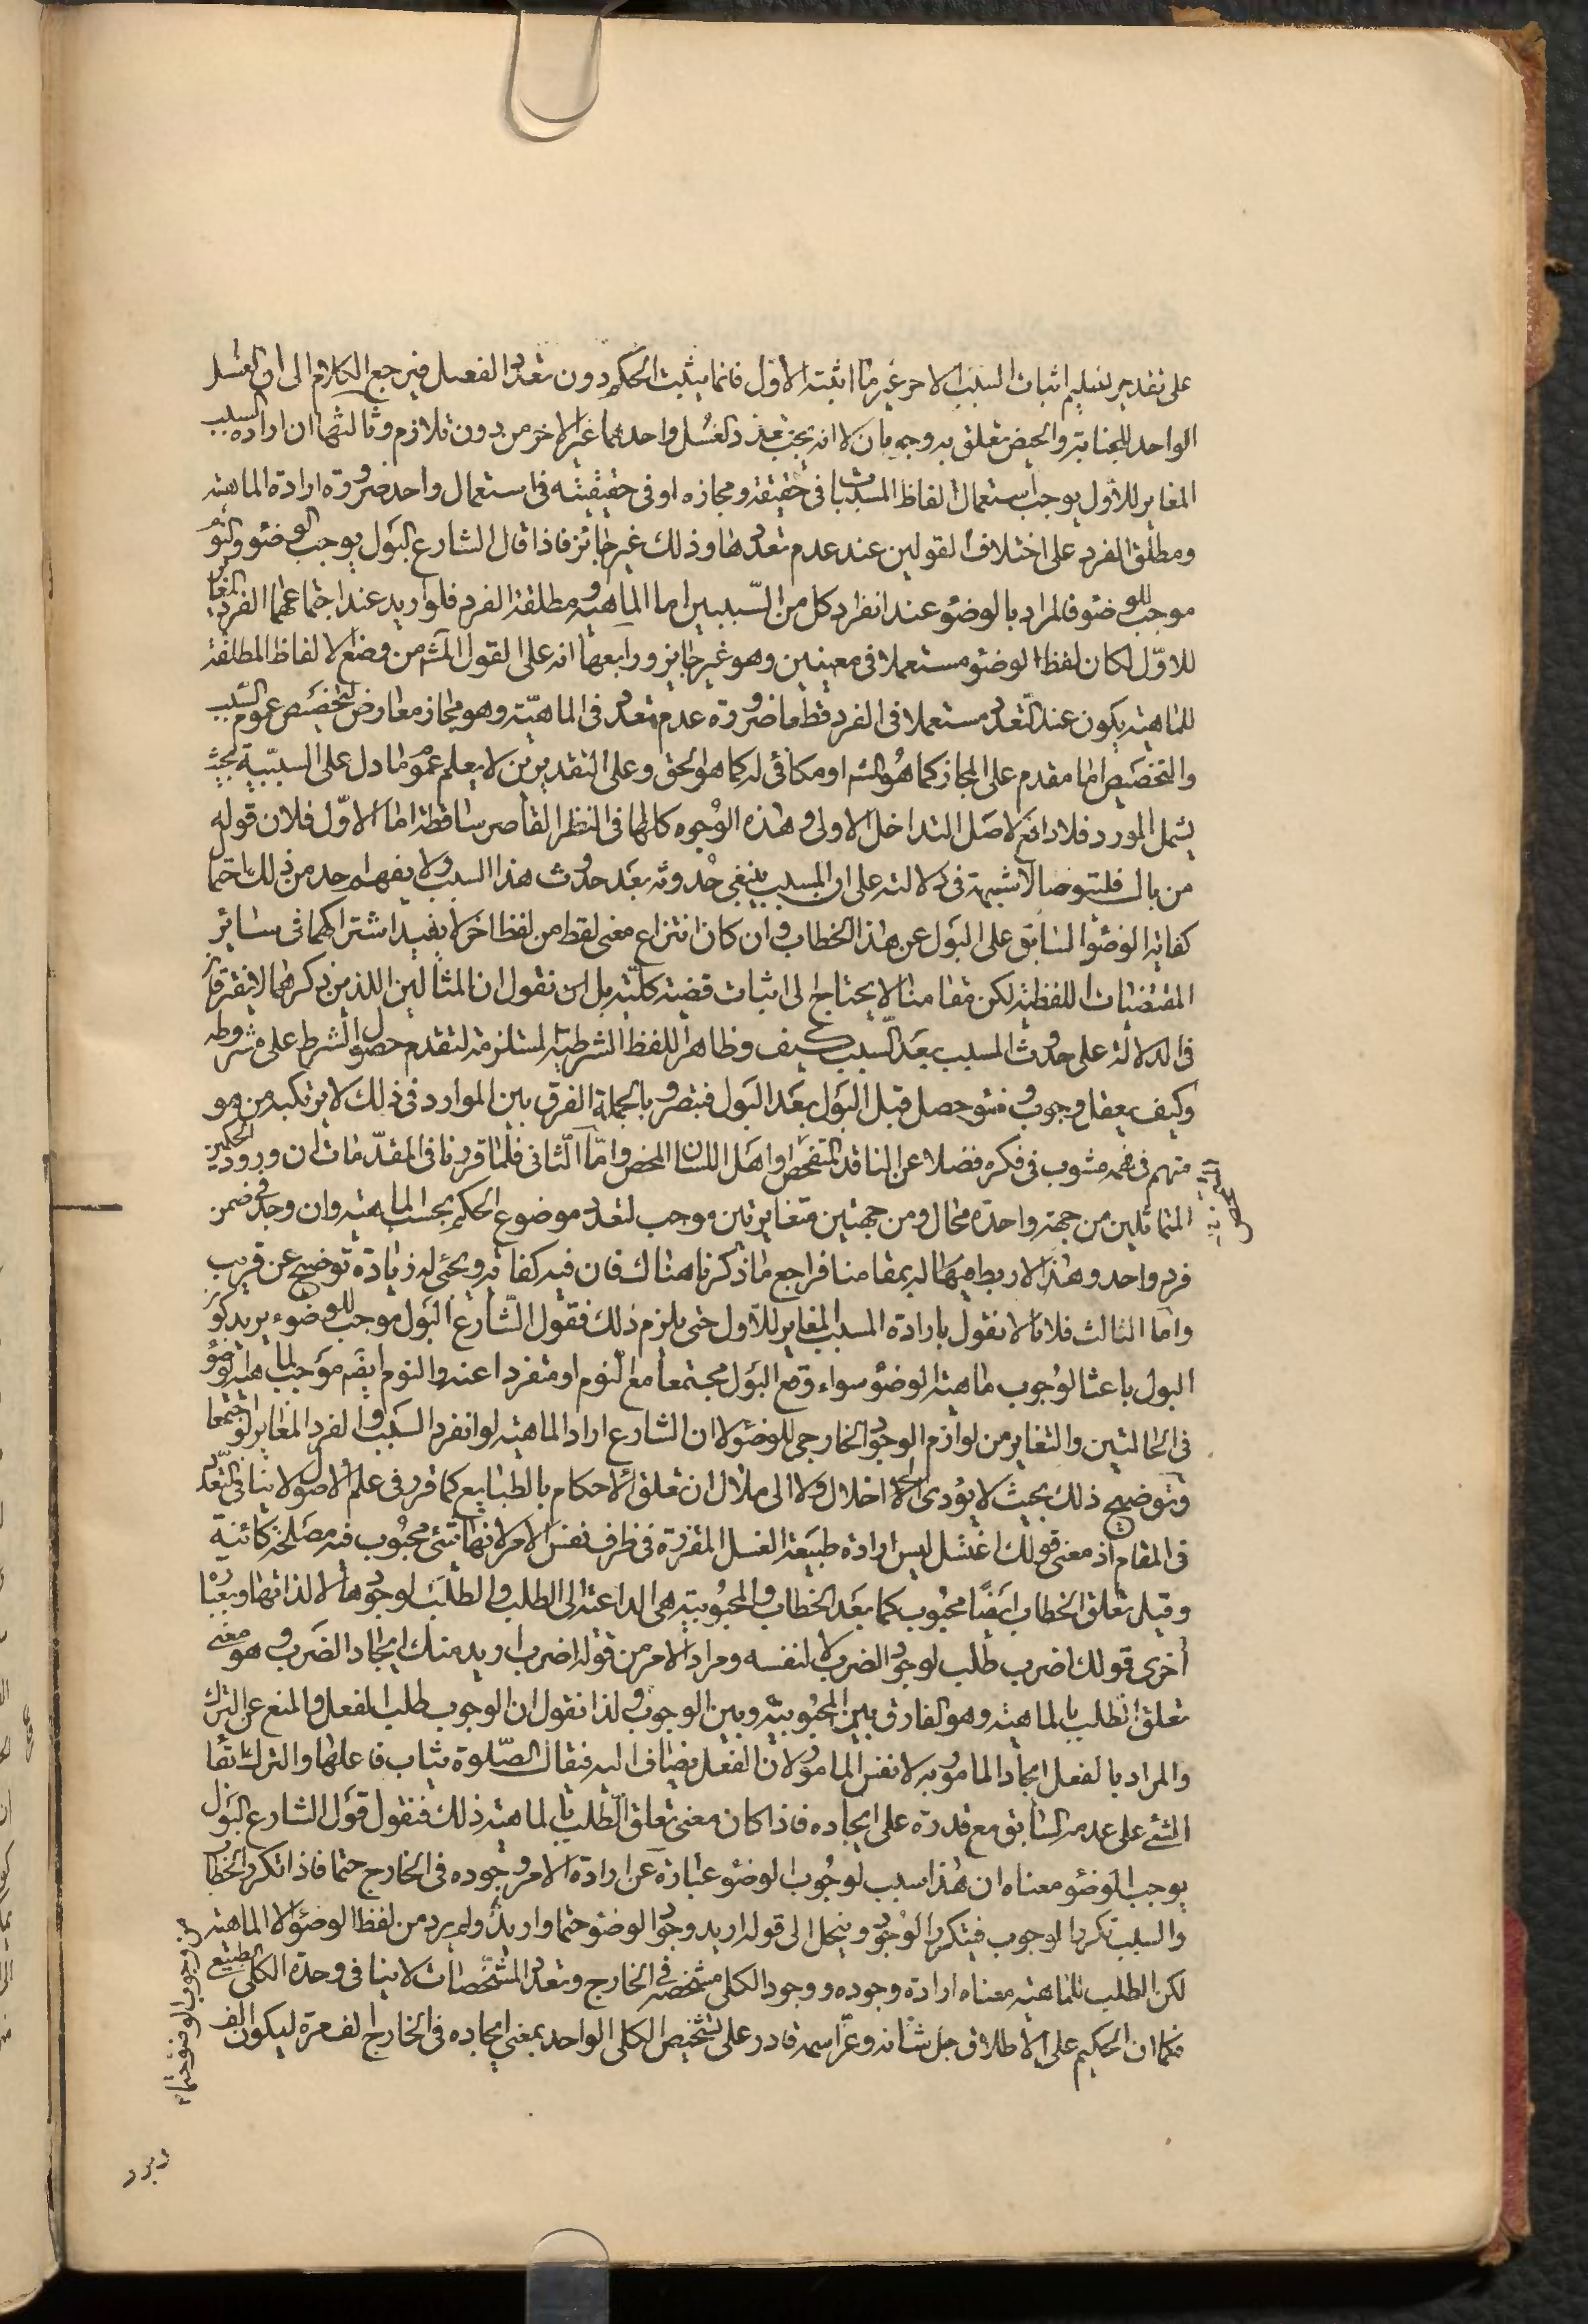 على تقدير تسليم اثبات السبب الاخر غير ما اثبته الاول فانما يثبت الحكم دون تعدد الفعل فيرجع الكلام الى ان الغسل
الواحد للجنابة والحيض تعلق به وجوبان لا انه يجب تعدد الغسل واحدهما غير الاخر من دون تلازم وثالثها ان ارادة السبب
المغاير للاول يوجب استعمال الفاظ المسببات اما فى حقيقته ومجازه او فى حقيقيته فى استعمال واحد ضرورة ارادة الماهية
ومطلق الفرد على اختلاف القولين عند عدم تعددها وذلك غير جائز فاذا قال الشارع البول يوجب الوضوء والنوم
موجب للوضوء فالمراد بالوضوء عند انفراد كل من السببين اما الماهية او مطلقة الفرد فلو اريد عند اجتماعهما الفرد المغاير
للاول لكان لفظ الوضوء مستعملا فى معنيين وهو غير جايز ورابعها انه على القول المش من وضع الالفاظ المطلقة
للماهية يكون عند التعدد مستعملا فى الفرد قطعا ضرورة عدم تعدد فى الماهية وهو مجاز معارض لتخصيص عموم السبب
والتخصيص اما مقدم على المجاز كما هو المش او مكافئ له كما هو الحق وعلى التقديرين لا يعلم عموم ما دل على السببية بحيث
يشمل المورد فلا دافع لاصل التداخل الاولى وهذه الوجوه كلها فى النظر القاصر ساقطة اما الاول فلان قوله
من بال فليتوضا لا شبهة فى دلالته على ان المسبب ينبغى حدوثه بعد حدوث هذا السبب ولا يفهم احد من ذلك احتما
كفاية الوضوء السابق على البول عن هذا الخطاب وان كان انتزاع معنى لفظ من لفظ اخر لا يفيد اشتراكهما فى سائر
المقتضيات اللفظية لكن مقامنا لا يحتاج الى اثبات قضية كلية بل ان نقول ان المثالين اللذين ذكرهما لا يفترقان
فى الدلالة على حدوث المسبب بعد السبب كيف وظاهر اللفظ الشرطية المستلزمة لتقدم حصول الشرط على مشروطه
وكيف يعقل وجوب وضوء حصل قبل البول بعد البول فتبصر وبالجملة الفرق بين الموارد فى ذلك لا يرتكبه من هو
متهم فى فهمه مشوب فى فكره فضلا عن الناقد المتفحص او اهل اللسان المحض واما الثانى فلما قررنا فى المقدمات ان ورود الحكمين
المتماثلين من جهة واحدة محال ومن جهتين متغايرتين موجب لتعدد موضوع الحكم بحسب الماهية وان وجد فى ضمن
فرد واحد وهذا لا ربط فيها له بمقامنا فراجع ما ذكرنا هناك فان فيه كفاية ويجئ له زيادة توضيح عن قريب
واما الثالث فلانا لا نقول بارادة المسبب المغاير للاول حتى يلزم ذلك فقول الشارع البول موجب للوضوء يريد كون
البول باعثا لوجوب ماهية الوضوء سواء وقع البول مجتمعا مع النوم او متفردا عنه والنوم ايضم موجب لماهية الوضوء
فى الحالتين والتغاير من لوازم الوجود الخارجى للوضوء لا ان الشارع اراد الماهية لو انفرد السبب والفرد المغاير لو اجتمعا
وتوضيح ذلك بحيث لا يؤدى الى الاخلال ولا الى ملال ان تعلق الاحكام بالطبايع كما قرر فى علم الاصول لا ينافى التعدد
فى المقام اذ معنى قولك اغسل ليس ارادة طبيعة الغسل المقررة فى ظرف نفس الامر لانها شئ محبوب فيه مصلحة كائنية
وقيل تعلق الخطاب ايضا محبوب كما بعد الخطاب والمحبوبية هى الداعية الى الطلب والطلب لوجودها لا لذاتها وبعبارة
اخرى قولك اضرب طلب لوجود الضرب لا لنفسه ومراد الامر من قوله اضرب اريد منك ايجاد الضرب وهو معنى
تعلق الطلب بالماهية وهو الفارق بين المحبوبية وبين الوجوب ولذا نقول ان الوجوب طلب الفعل والمنع عن الترك
والمراد بالفعل ايجاد المامور به لا نفس المامور لان الفعل يضاف اليه فيقال الصلوة يثاب فاعلها والترك ابقا
الشئ على عدمه السابق مع قدرة على ايجاده فاذا كان معنى تعلق الطلب بالماهية ذلك فنقول قول الشارع البول
يوجب الوضوء معناه ان هذا سبب لوجوب الوضوء عبارة عن ارادة الامر وجوده فى الخارج حتما فاذا تكرر الخطاب
والسبب تكرر الوجوب فيتكرر الوجود وينحل الى قوله اريد وجود الوضوء حتما واريد ولم يرد من لفظ الوضوء الا الماهية
لكن الطلب بالماهية معناه ارادة وجوده ووجود الكلى مشخصه فى الخارج وتعدد المشخصات لا ينافى وحدة الكلى الطبيعى
فكما ان الحكيم على الاطلاق جل شانه وعز اسمه قادر على تشخيص الكلى الواحد بمعنى ايجاده فى الخارج الف مرة ليكون الف
وجوب الوضوء حتما